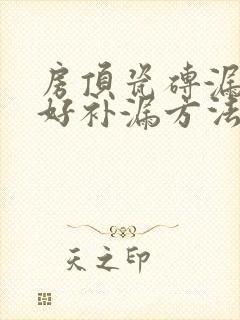 房頂瓷磚漏
好补漏方法
天之印